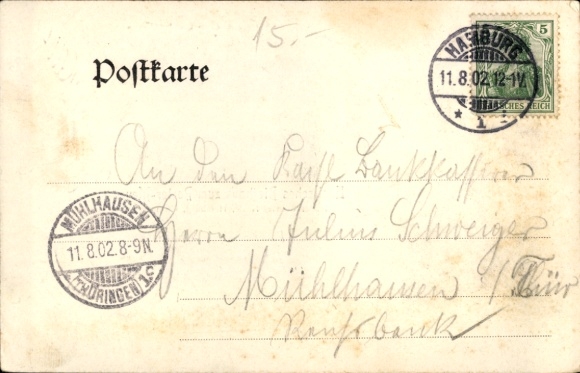 15.-
Postkarte
5
DEUTSCHES REICH
HAMBURG
11.8.02.12-1V.
* 1 *
An den Kaisl Bankkassirer
Herrn Julius Schweiger
Mühlhausen / Thür
Reichsbank
MÜHLHAUSEN
11.8.02.8-9N.
(THÜRINGEN) 1c